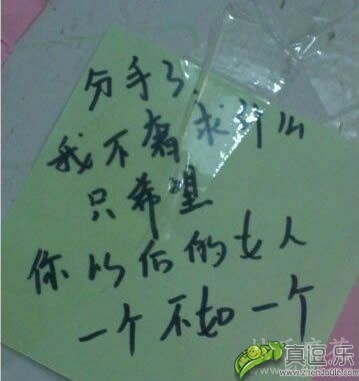 分手了.
我不奢求什么
只希望
你以后的女人
一个不如一个
真逗乐